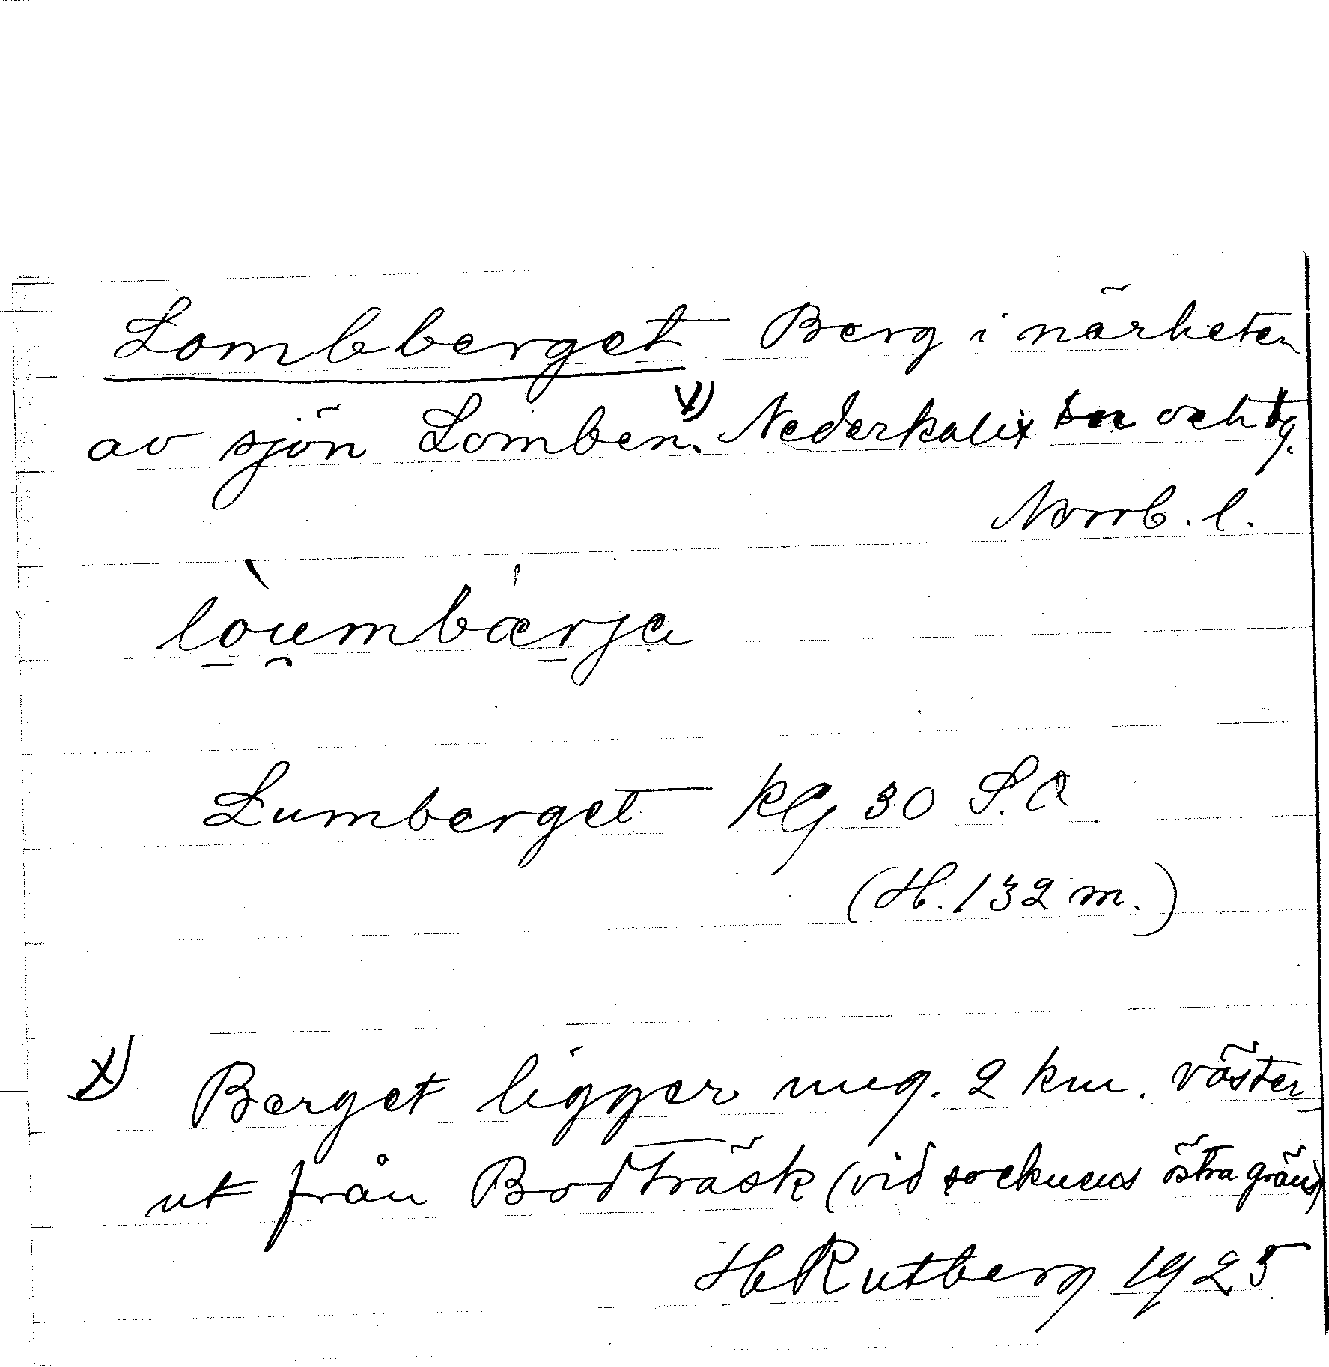 Lombberget Berg i närheten
av sjön Lomben. x) Nederkalix sn och tg.
Norrb. l.
lòu̯mbær̠ja
Lumberget KG 30 S.O
(H. 132 m.)
x) Berget ligger ung. 2 km. väster
ut från Bodträsk (vid socknens östra gräns)
H Rutberg 1925